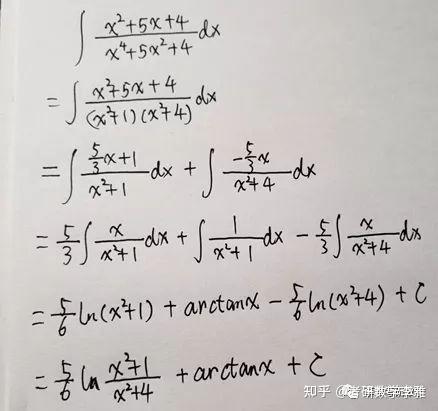 ∫ (x²+5x+4)/(x⁴+5x²+4) dx
= ∫ (x²+5x+4)/((x²+1)(x²+4)) dx
= ∫ (5/3 x+1)/(x²+1) dx + ∫ (-5/3 x)/(x²+4) dx
= 5/3 ∫ x/(x²+1) dx + ∫ 1/(x²+1) dx - 5/3 ∫ x/(x²+4) dx
= 5/6 ln(x²+1) + arctanx - 5/6 ln(x²+4) + C
= 5/6 ln (x²+1)/(x²+4) + arctanx + C
知乎 @考研数学李雅